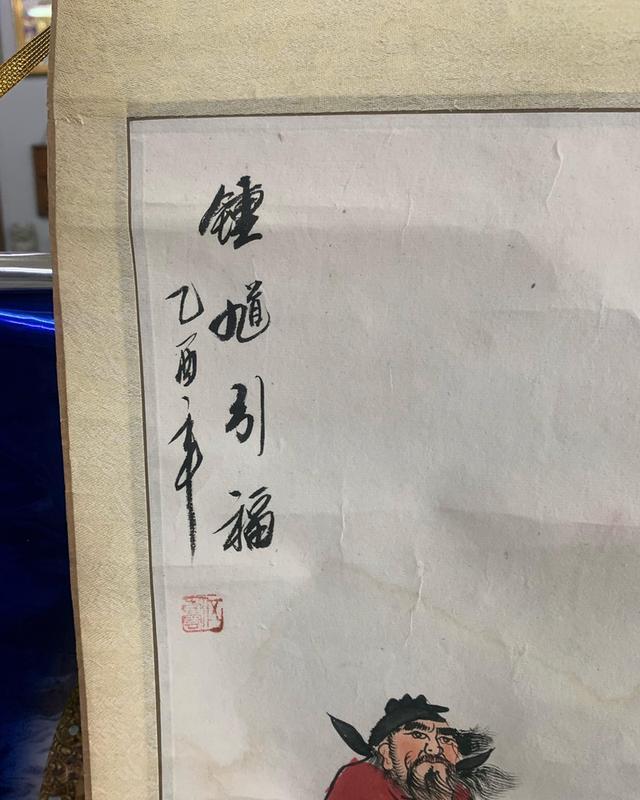 鍾馗引福
乙酉年